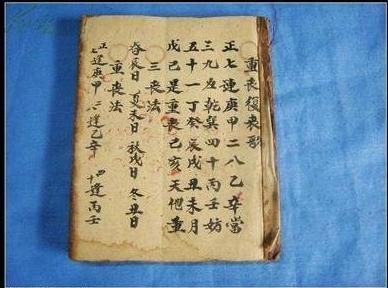 重喪復喪歌
正七連庚甲二八乙辛當
三九及乾巽四十丙壬妨
五十一丁癸辰戌丑未月
戊己是重喪己亥天他重
三喪法
春辰日 夏未日 秋戌日 冬丑日
重喪法
正七逢庚甲 二八逢乙辛 四十逢丙壬